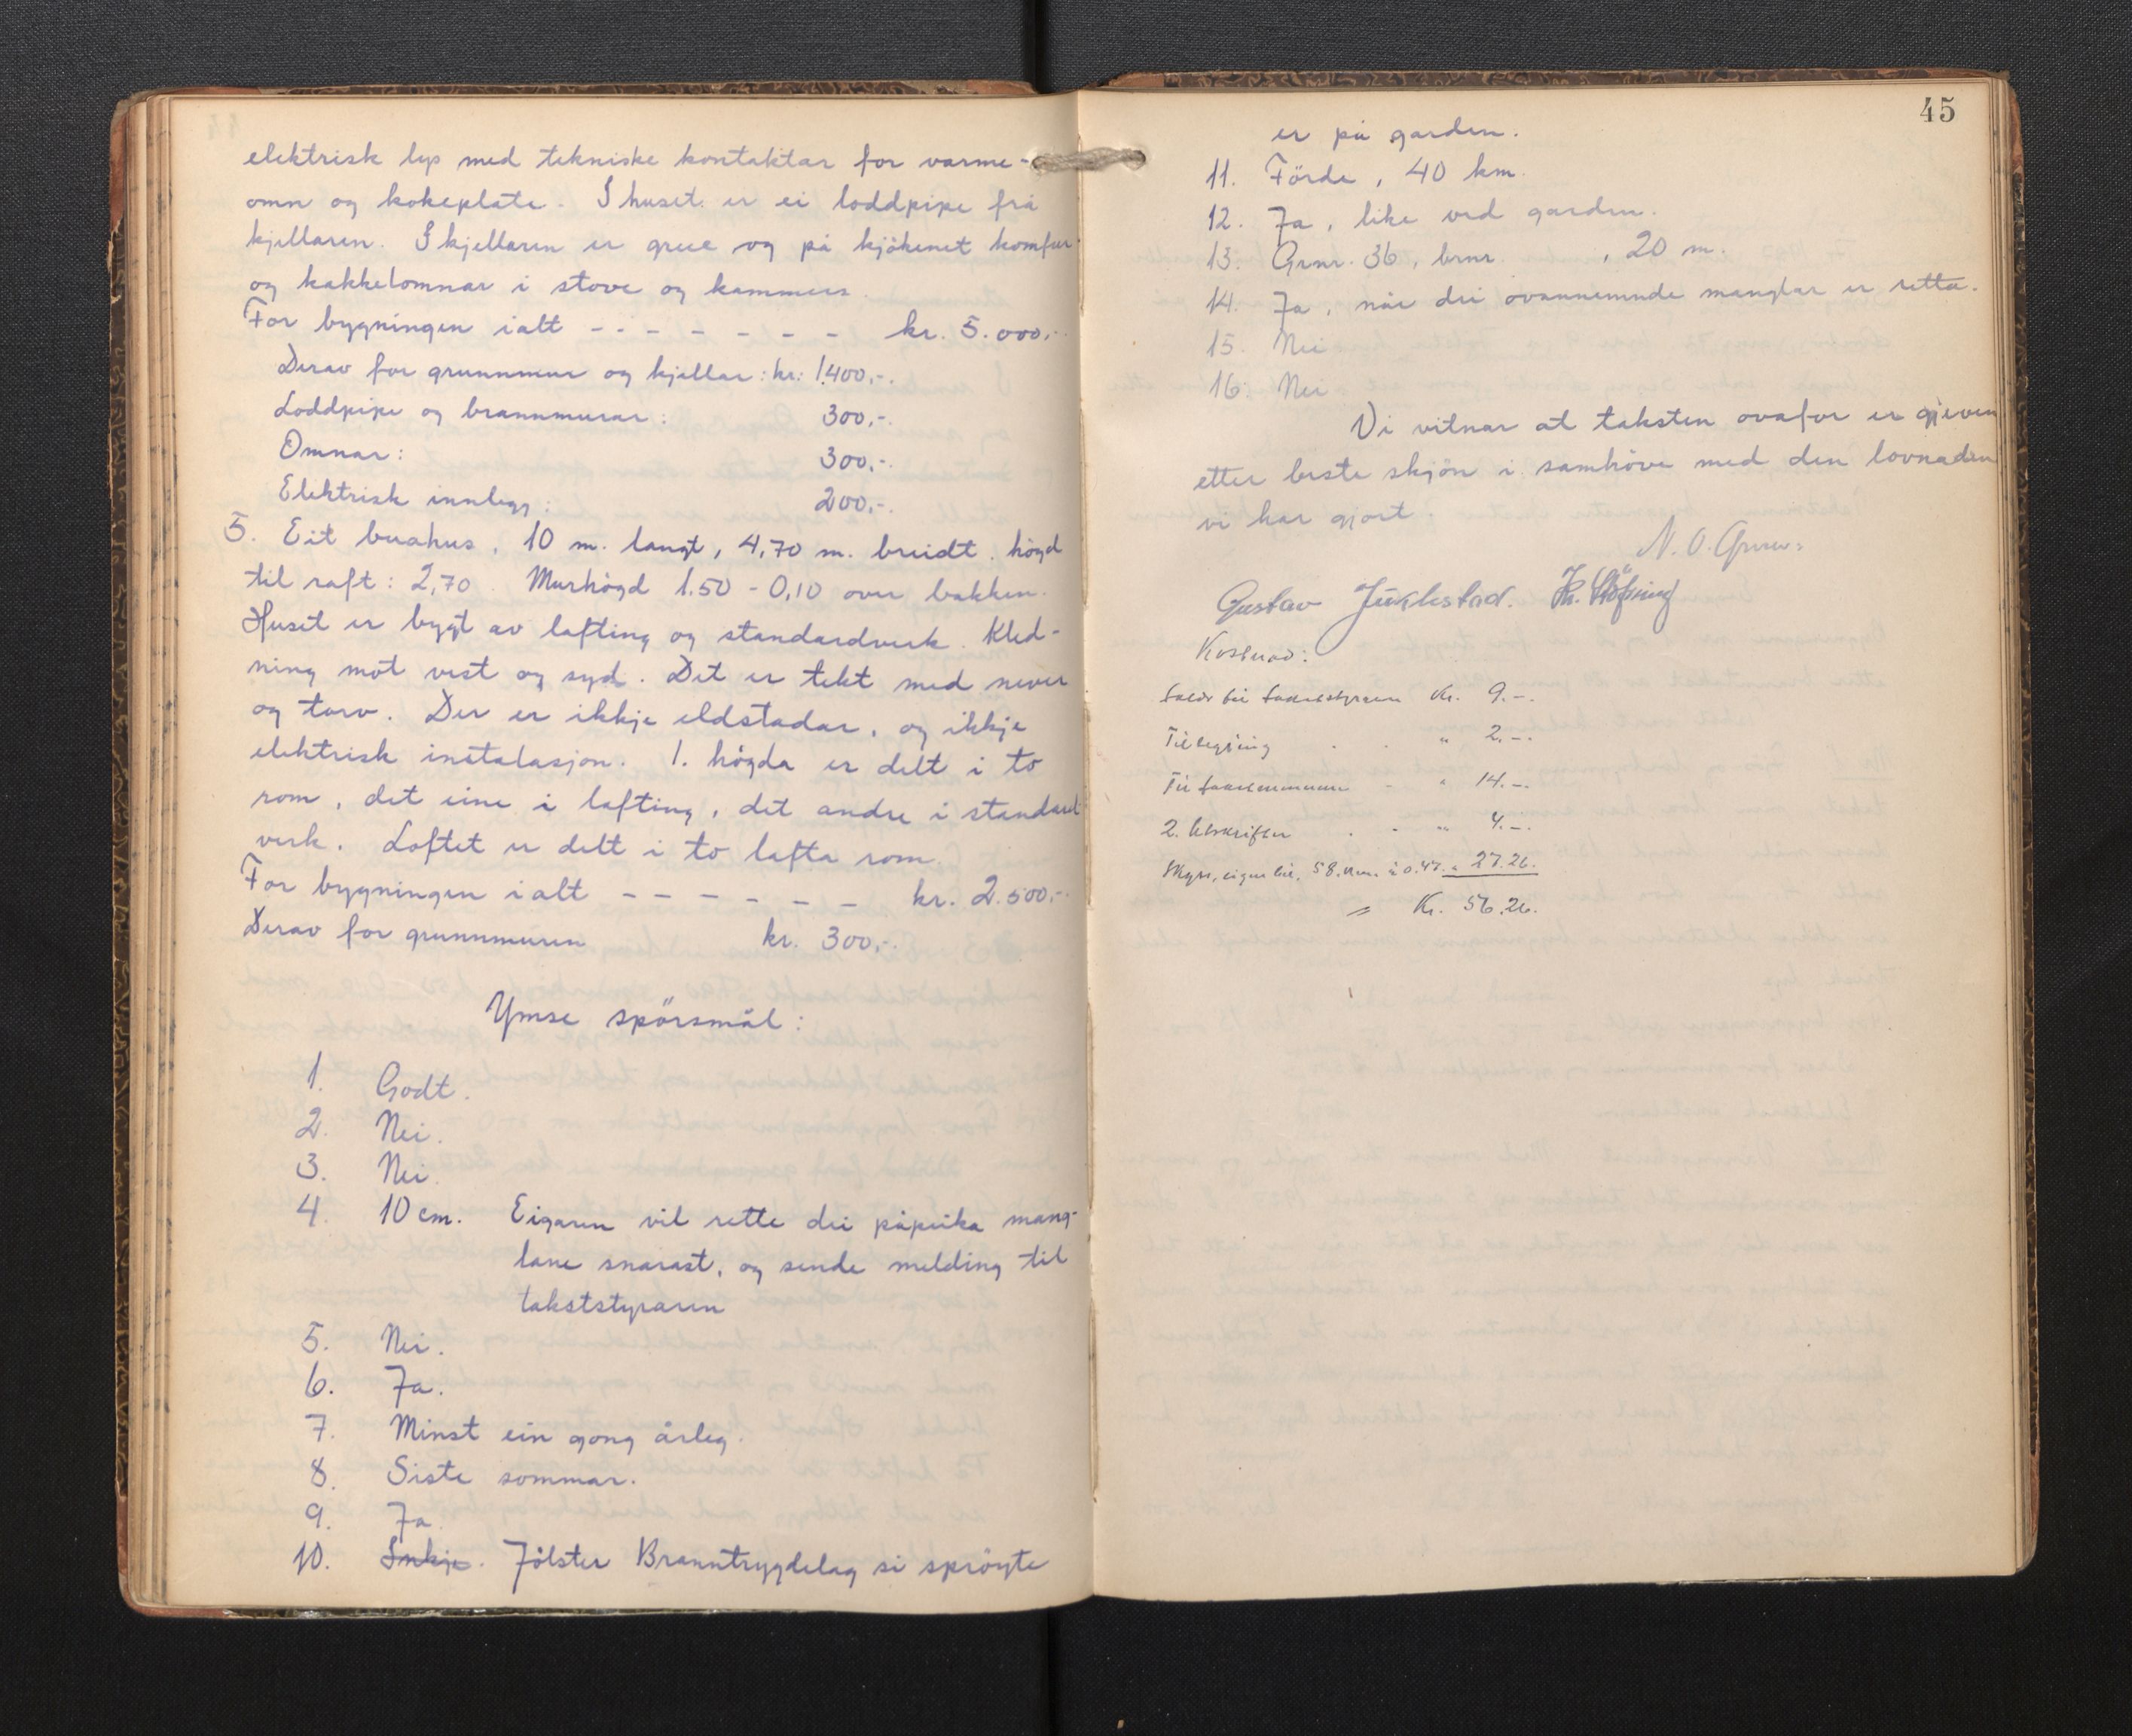 elektrisk lys med tekniske kontaktar for varme-
omn og kokeplate. I huset er ei loddpipe frå
kjellaren. I kjellaren er grue og på kjökenet komfur
og kakkelomnar i stove og kammers.
For bygningen ialt - - - - - - - kr. 5.000,-
Derav for grunnmur og kjellar: kr: 1.400,-.
Loddpipe og brannmurar: 300,-.
Omnar: 300,-.
Elektrisk innlegg: 200,-.
5. Eit buahus, 10 m. langt, 4,70 m. breidt. högd
til raft: 2,70. Murhögd 1.50 - 0,10 over bakken.
Huset er bygt av lafting og standardverk. Kled-
ning mot vest og syd. Det er tekt med never
og torv. Der er ikkje eldstadar, og ikkje
elektrisk instalasjon. 1. högda er delt i to
rom, det eine i lafting, det andre i standard
verk. Loftet er delt i to lafta rom.
For bygningen ialt - - - - - - kr. 2.500,-
Derav for grunnmuren kr. 300,-.
Ymse spörsmål:
1. Godt.
2. Nei.
3. Nei.
4. 10 cm. Eigaren vil rette dei påpeika mang-
lane snarast, og sende melding til
takststyraren
5. Nei.
6. Ja.
7. Minst ein gong årleg.
8. Siste sommar.
9. Ja
10. Inkje. Jölster Branntrygdelag si spröyte
45
er på garden.
11. Förde, 40 km.
12. Ja, like ved garden.
13. Grnr. 36, brnr. , 20 m.
14. Ja, når dei ovannemnde manglar er retta.
15. Nei
16. Nei
Vi vitnar at taksten ovafor er gjeven
etter beste skjön i samhöve med den lovnaden
vi har gjort.
N. O.
Gustav
Kostnad:
Kr. 9.-.
" 2.-.
" 14.-.
2. Utskrifter " 4.-.
58. km. à 0.47. " 27.26.
= Kr. 56.26.